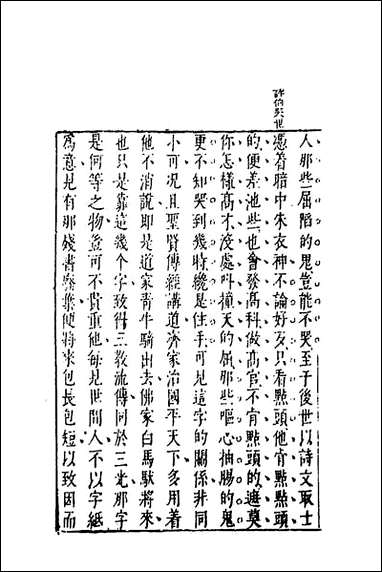 人那些屈陷的鬼豈能不哭至于後世以詩文取士
憑着暗中朱衣神不論好歹只看點頭他肯點點頭
的便差池些也會發高科做高官不肯點頭的遮莫
你怎樣高才沒處叫撞天的屈那些嘔心抽腸的鬼
更不知哭到幾時纔是住手可見這字的關係非同
小可况且聖賢傳經講道齊家治國平天下多用着
他不消說卽是道家青牛騎出去佛家白馬馱將來
也只是靠這幾个字致得三教流傳同於三光那字
是何等之物豈可不貴重他每見世間人不以字紙
爲意見有那殘書廢葉便將來包長包短以致因而